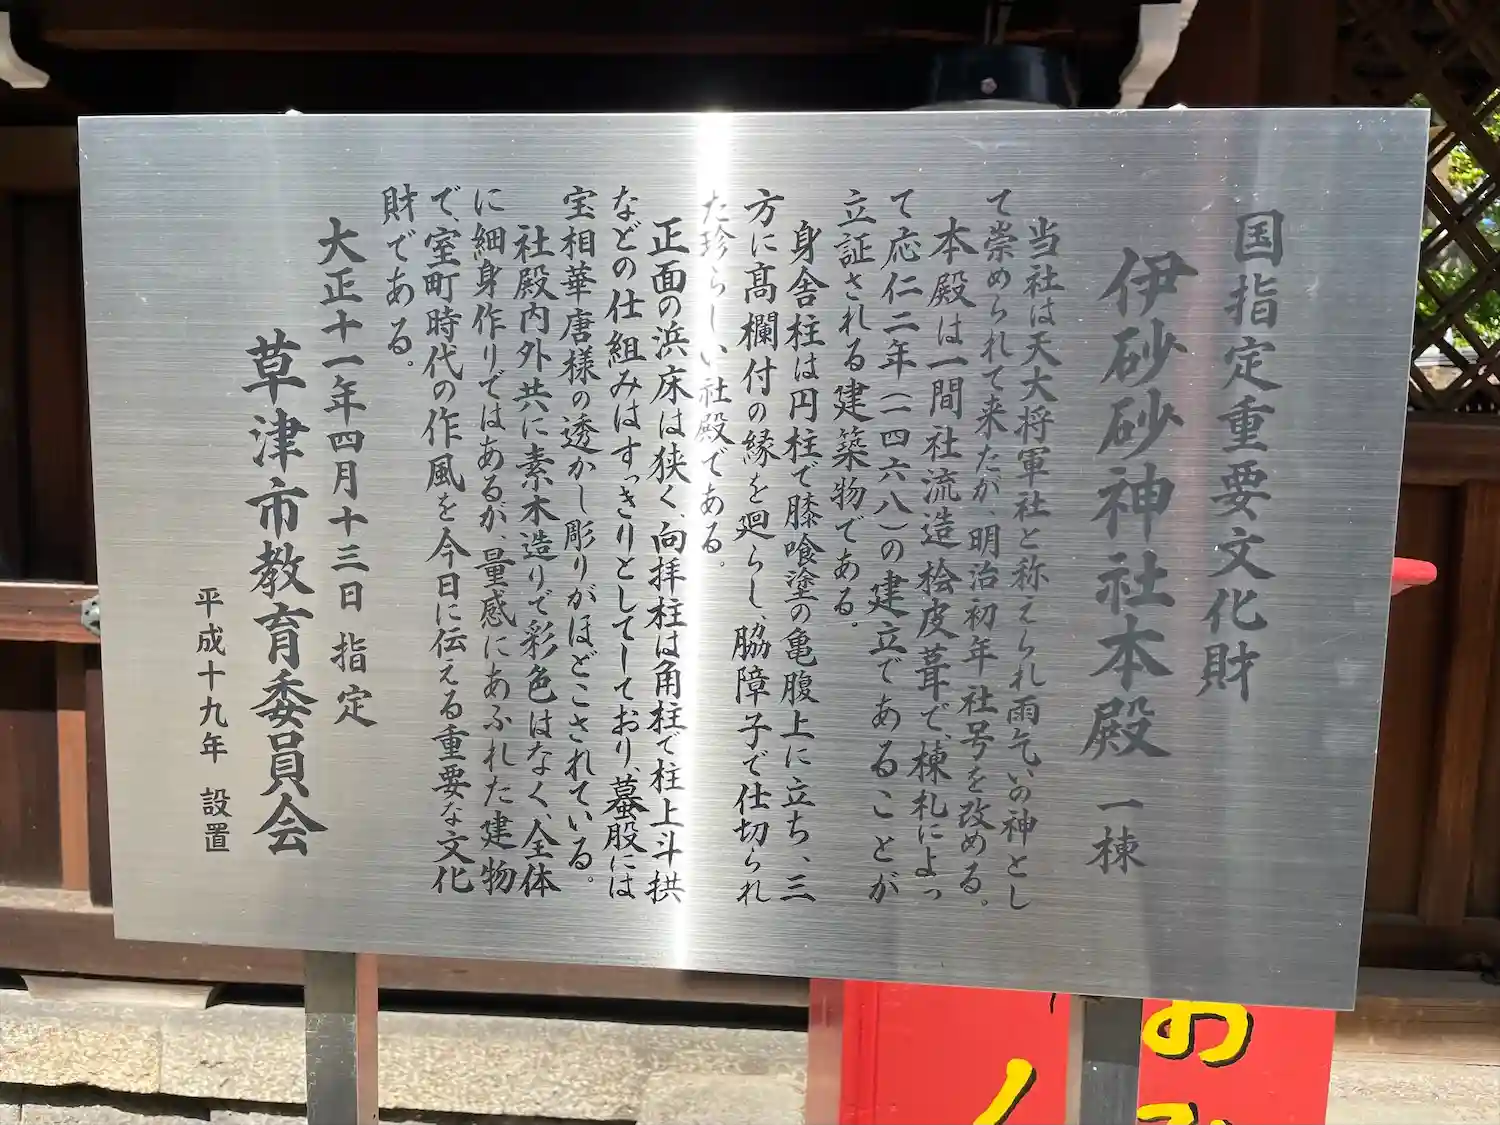 国指定重要文化財
伊砂砂神社本殿 一棟
当社は天大将軍社と称えられ雨乞いの神とし
て崇められて来たが、明治初年社号を改める。
本殿は一間社流造桧皮葺で、棟札によっ
て応仁二年(一四六八)の建立であることが
立証される建築物である。
身舎柱は円柱で膝喰塗の亀腹上に立ち、三
方に高欄付の縁を廻らし、脇障子で仕切られ
た珍らしい社殿である。
正面の浜床は狭く、向拝柱は角柱で柱上斗拱
などの仕組みはすっきりとしてしており、蟇股には
宝相華唐様の透かし彫りがほどこされている。
社殿内外共に素木造りで彩色はなく、全体
に細身作りではあるが、量感にあふれた建物
で、室町時代の作風を今日に伝える重要な文化
財である。
大正十一年四月十三日 指定
草津市教育委員会
平成十九年 設置
お
く